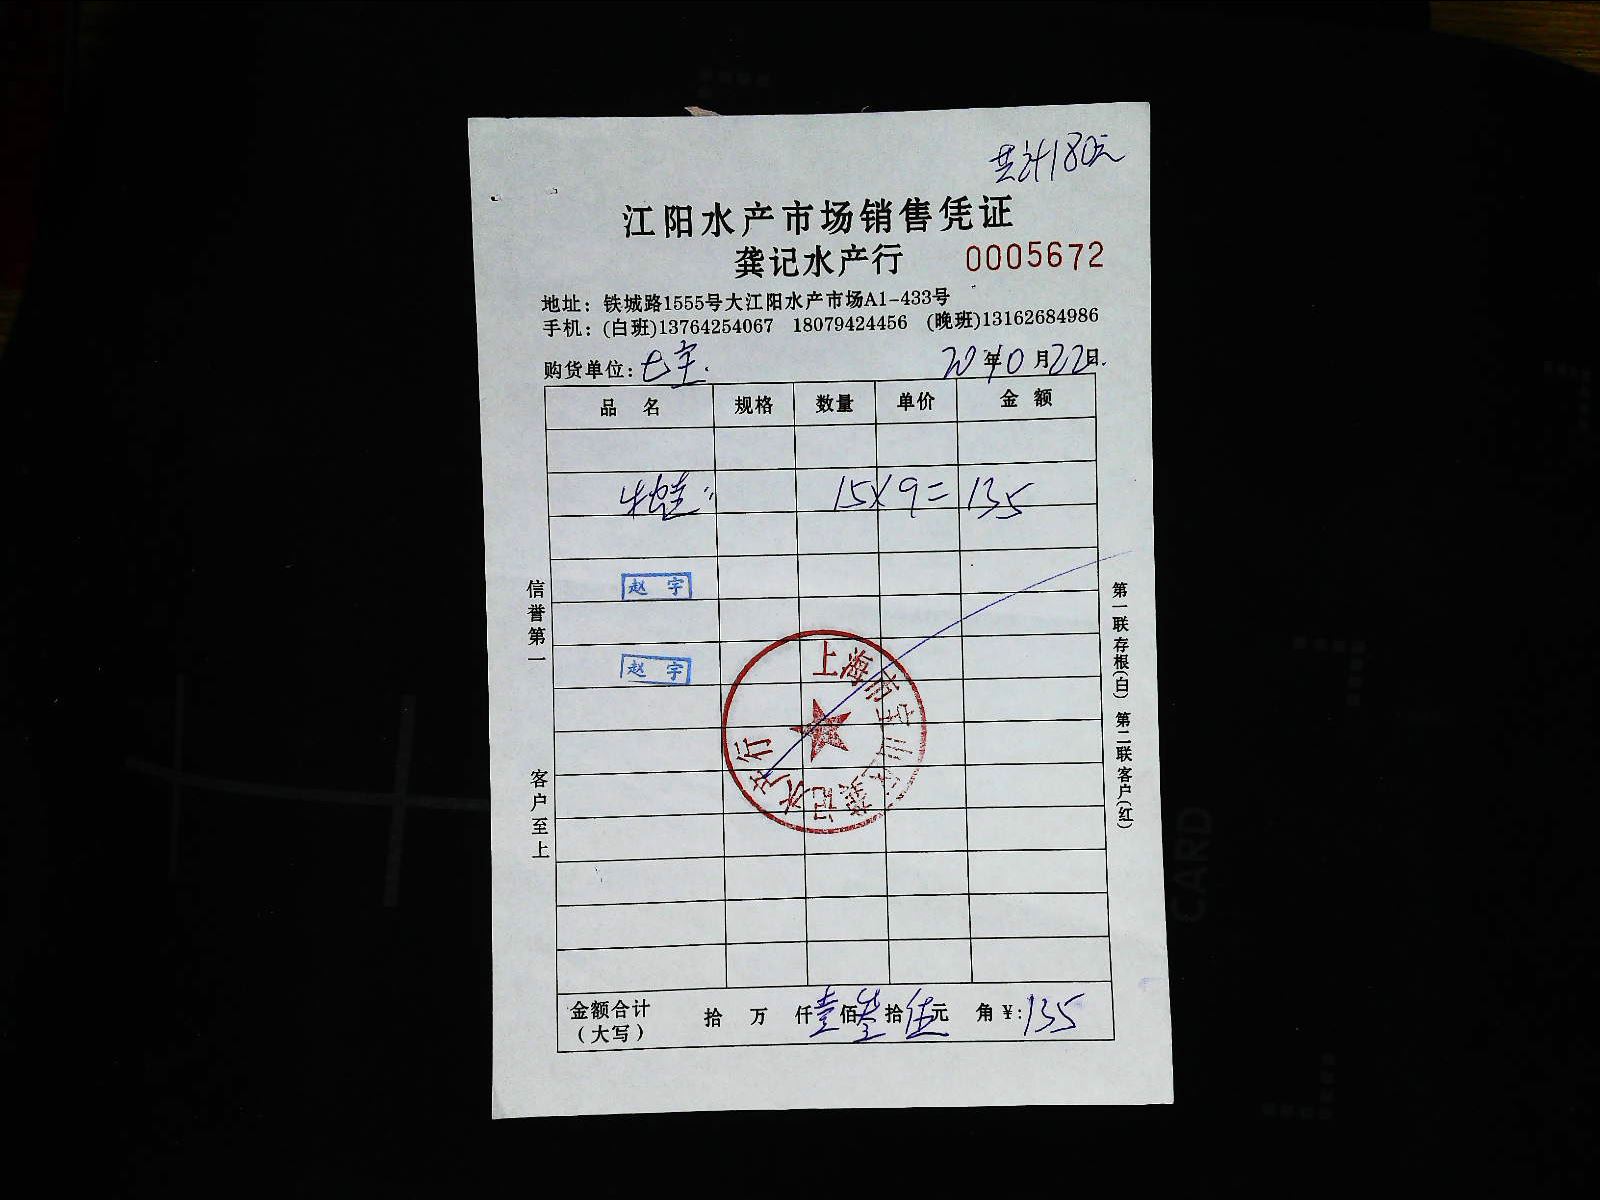 共计180元
江阳水产市场销售凭证
龚记水产行 0005672
地址：铁城路1555号大江阳水产市场A1-433号
手机：(白班)13764254067 18079424456 (晚班)13162684986
购货单位：七宝. 20年10月22日.
品名 规格 数量 单价 金额
牛蛙 15×9=135
赵宇
赵宇
上海市宝山区龚记水产行
信誉第一
客户至上
第一联存根(白) 第二联客户(红)
金额合计(大写) 拾 万 仟壹佰叁拾伍元 角 ¥:135
CARD